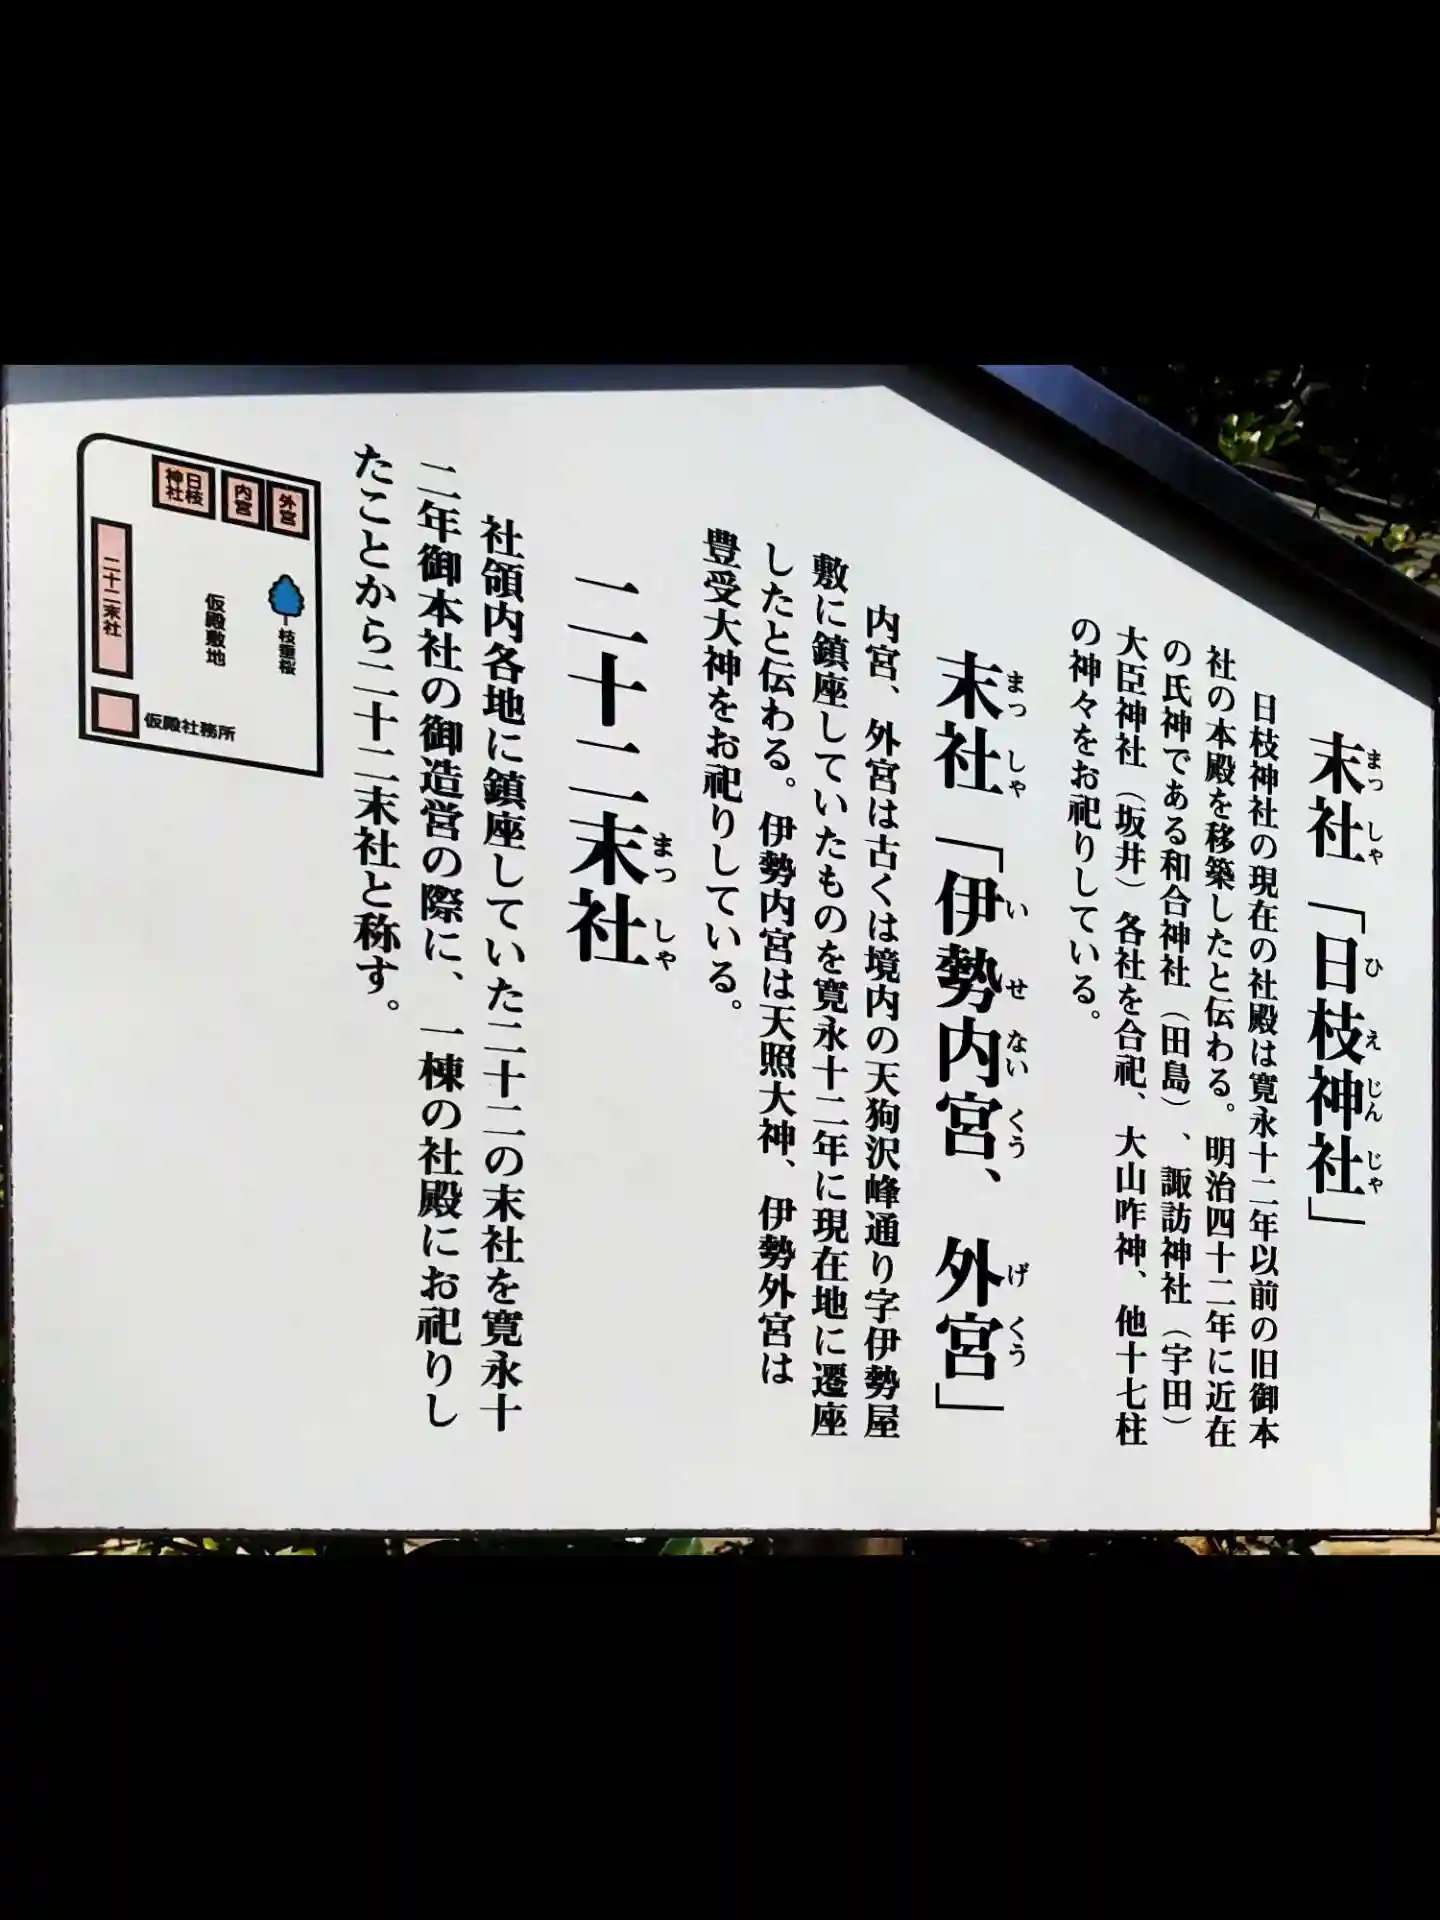 末社「日枝神社」
まっしゃ ひえじんじゃ
日枝神社の現在の社殿は寛永十二年以前の旧御本
社の本殿を移築したと伝わる。明治四十二年に近在
の氏神である和合神社（田島）、諏訪神社（宇田）
大臣神社（坂井）各社を合祀、大山咋神、他十七柱
の神々をお祀りしている。
末社「伊勢内宮、外宮」
まっしゃ いせないくう げくう
内宮、外宮は古くは境内の天狗沢峰通り字伊勢屋
敷に鎮座していたものを寛永十二年に現在地に遷座
したと伝わる。伊勢内宮は天照大神、伊勢外宮は
豊受大神をお祀りしている。
二十二末社
まっしゃ
社領内各地に鎮座していた二十二の末社を寛永十
二年御本社の御造営の際に、一棟の社殿にお祀りし
たことから二十二末社と称す。
外宮
内宮
日枝
神社
枝垂桜
仮殿敷地
二十二末社
仮殿社務所